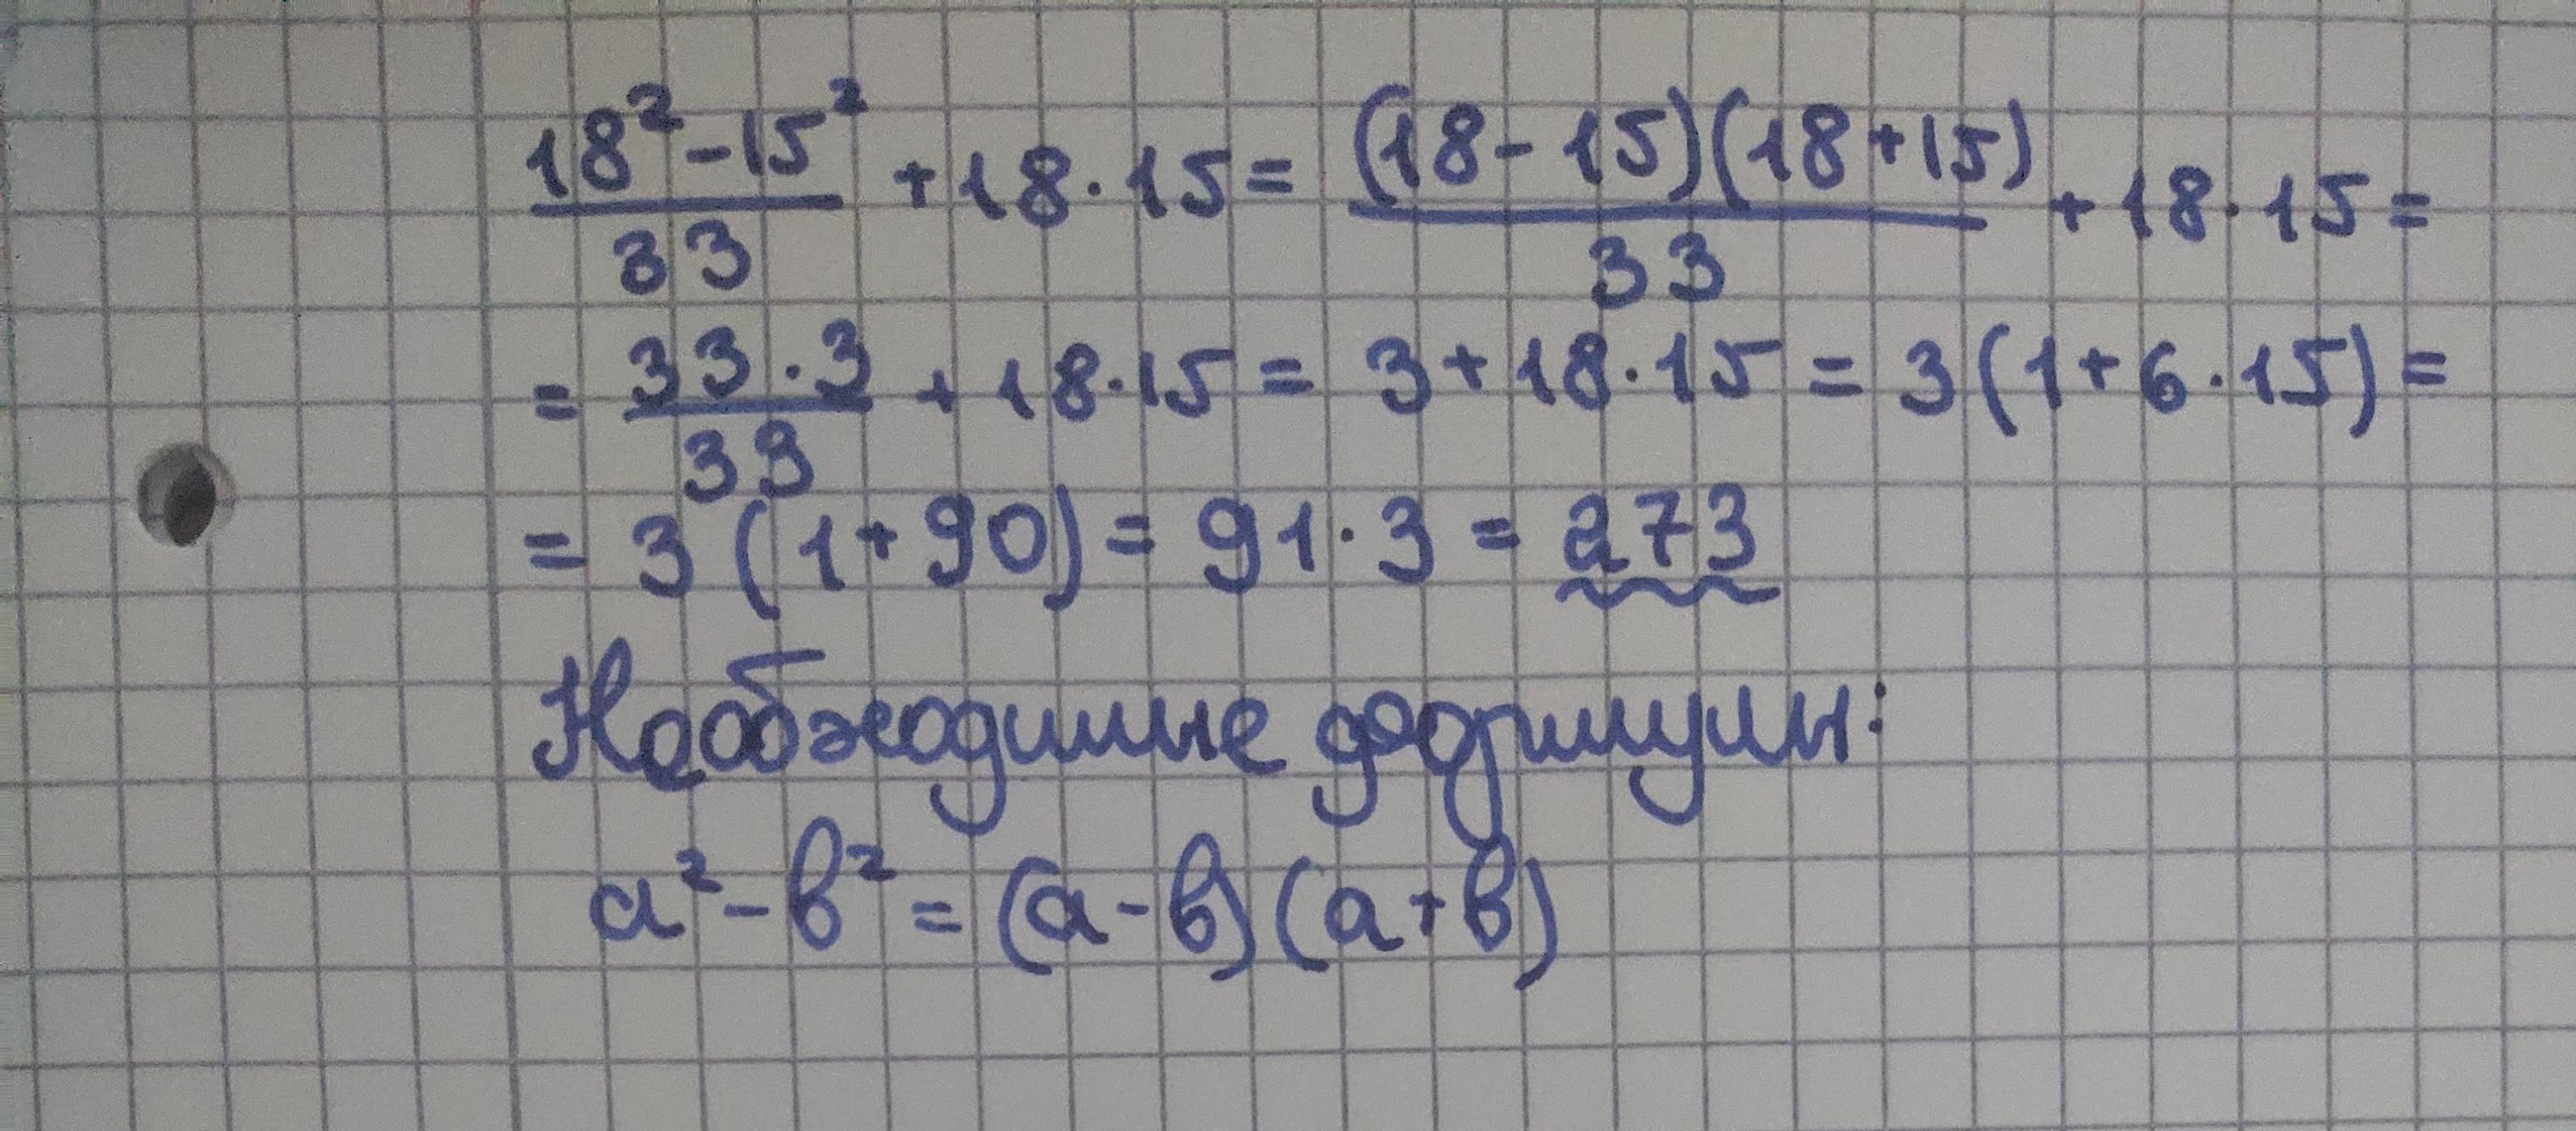 (18² - 15²)/33 + 18 · 15 = ((18 - 15)(18 + 15))/33 + 18 · 15 =
= (33 · 3)/33 + 18 · 15 = 3 + 18 · 15 = 3(1 + 6 · 15) =
= 3(1 + 90) = 91 · 3 = 273
Необходимые формулы:
a² - b² = (a - b)(a + b)